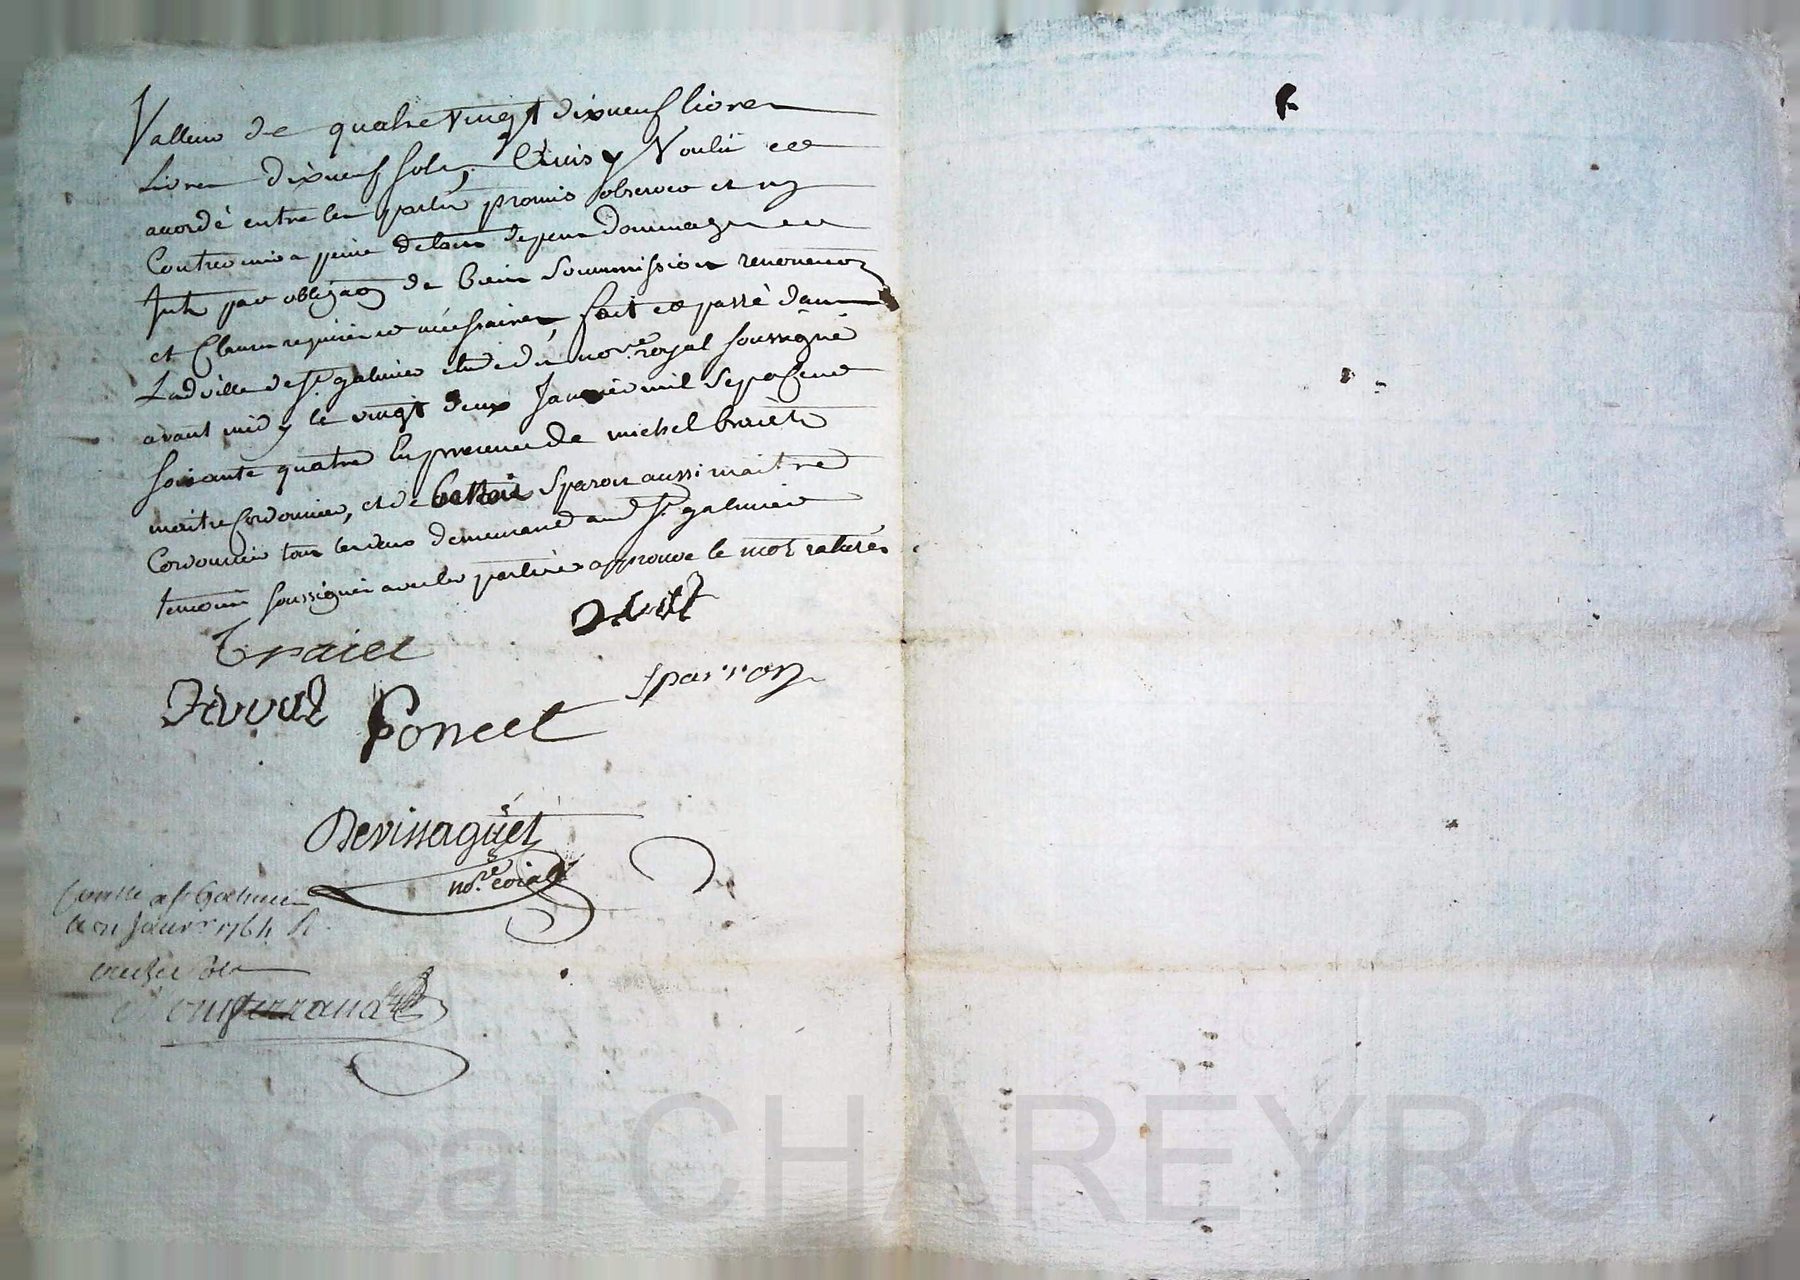 Valleur de quatre vingt dixneuf livres
Livres dixneuf sols, Ainsy Voulu et
acordé entre les parties promis observer et ny
Contrevenir a peine de tous depens dommages et
Jnts par obligaon de biens Soummissions renonciaon
et Clauses requises et necessaires, fait et passé dans
Lad ville de St galmier etude du nore royal soussigné
avant midy le vingt deux Janvier mil Sept Cent
soixante quatre En presence de michel
maitre Cordonnier, et de Sparon aussi maitre
Cordonnier tous les deux demeurand aud St galmier
temoins soussignés avec les parties approuve le mot raturés
Poncet
Sparron
Devissaguet
nore roial
a St Galmier
le 21 Janvr 1764 R
Montferrand
Pascal CHAREYRON